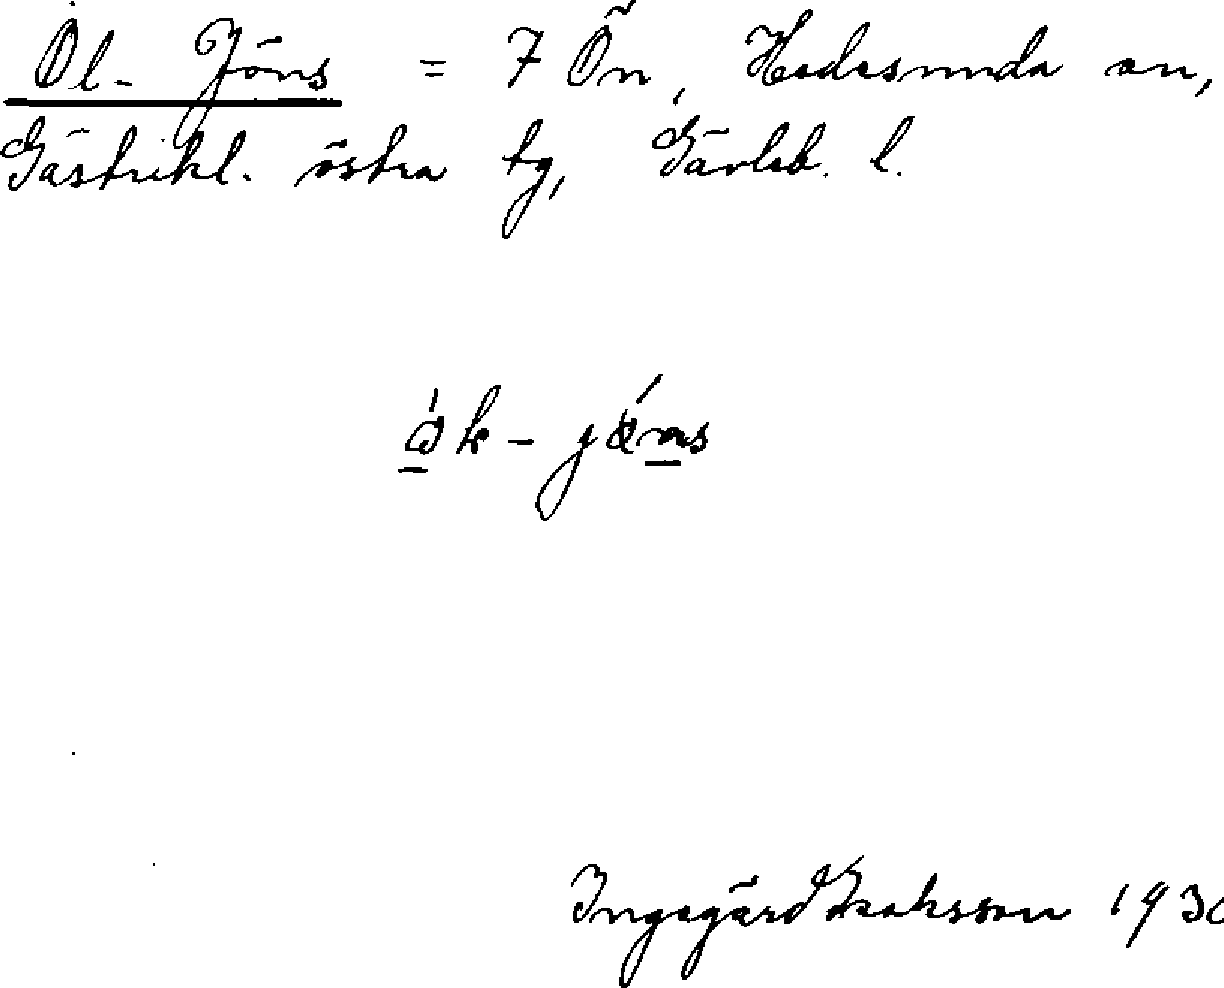 Ol-Jöns = 7 Ön, Hedesunda sn,
Gästrikl. östra tg, Gävleb. l.
Ingegärd Isaksson